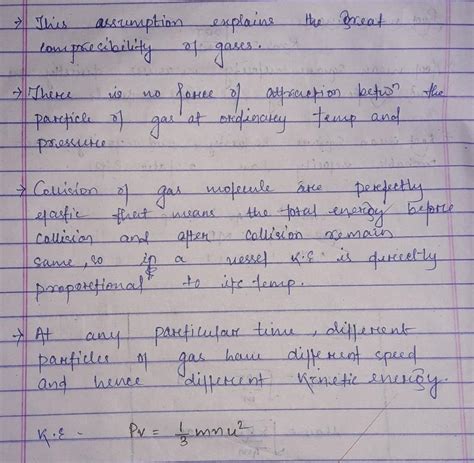 → This assumption explains the Great
compresibility of gases.
→ There is no force of attraction betwn the
particle of gas at ordinary temp and
pressure
→ Collision of gas molecule are perfectly
elastic that means the total energy before
collision and after collision remain
same, so in a vessel K.E is directly
proportional to its temp.
→ At any particular time, different
particles of gas have different speed
and hence different Kinetic energy.
K.E - PV = 1/3 mnu²